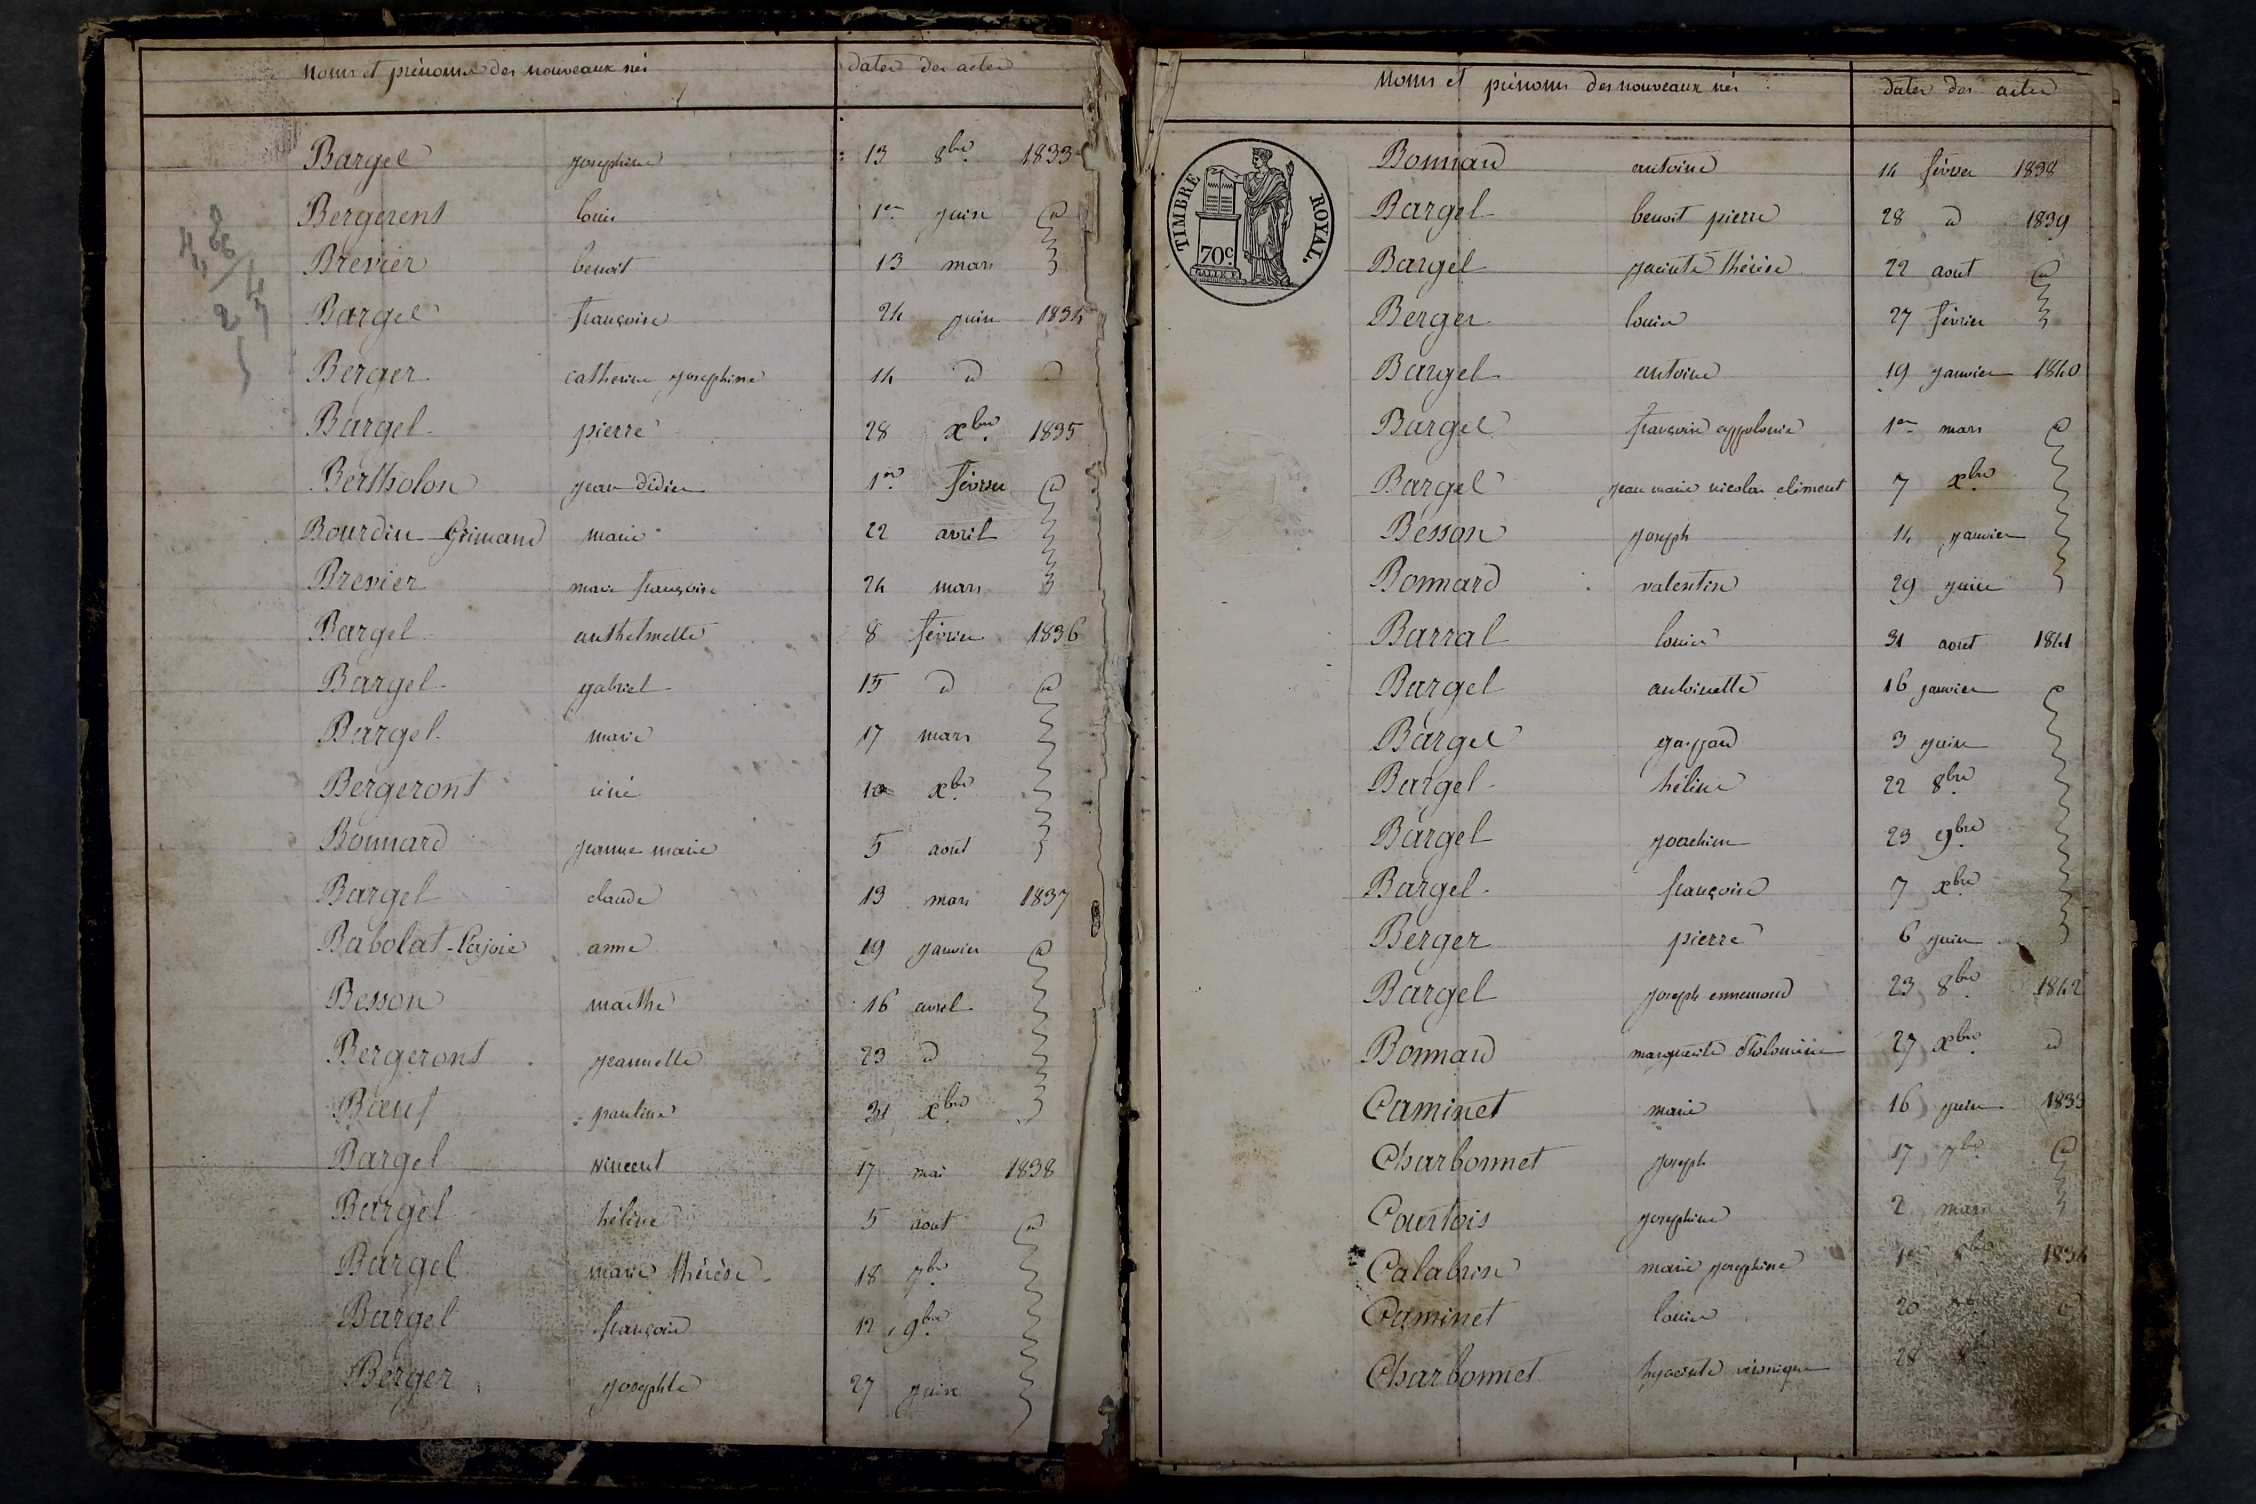 Noms et prénoms des nouveaux nés dates des actes
Bargel josephine 13 8bre 1833
Bergerent louis 1er juin d
Brevier benoit 13 mars
Bargel françoise 24 juin 1834
Berger catherine josephine 14 d d
Bargel pierre 28 xbre 1835
Bertholon jean didier 1er février d
Bourdin-Grimaud marie 22 avril
Brevier marie françoise 24 mars
Bargel anthelmette 8 février 1836
Bargel gabriel 15 d d
Bargel marie 17 mars
Bergeront réné 10 xbre
Bonnard jeanne marie 5 aout
Bargel claude 13 mars 1837
Babolat-Lajoie anne 19 janvier d
Besson marthe 16 avril
Bergeront jeannette 23 d
Bœuf pauline 31 xbre
Bargel vincent 17 mai 1838
Bargel hélène 5 aout d
Bargel marie thérèse 18 7bre
Bargel françois 12 9bre
Berger josephte 27 juin
Noms et prénoms des nouveaux nés dates des actes
TIMBRE ROYAL.
70c.
Bonnard antoine 14 février 1838
Bargel benoit pierre 28 d 1839
Bargel jacinte thérèse 22 aout d
Berger louise 27 février
Bargel antoine 19 janvier 1840
Bargel françoise appolonie 1er mars d
Bargel jean marie nicolas climent 7 xbre
Besson joseph 14 janvier
Bonnard valentin 29 juin
Barral louise 31 aout 1841
Bargel antoinette 16 janvier d
Bargel gaspard 3 juin
Bargel hélène 22 8bre
Bargel joachim 23 9bre
Bargel françoise 7 xbre
Berger pierre 6 juin
Bargel joseph ennemond 23 8bre 1842
Bonnard marguerite 27 xbre d
Caminet marie 16 juin 1833
Charbonnet joseph 17 7bre d
Courtois josephine 2 mars
Calabrin marie josephine 1er 1834
Caminet louise 20 d
Charbonnet hyacinte véronique 28